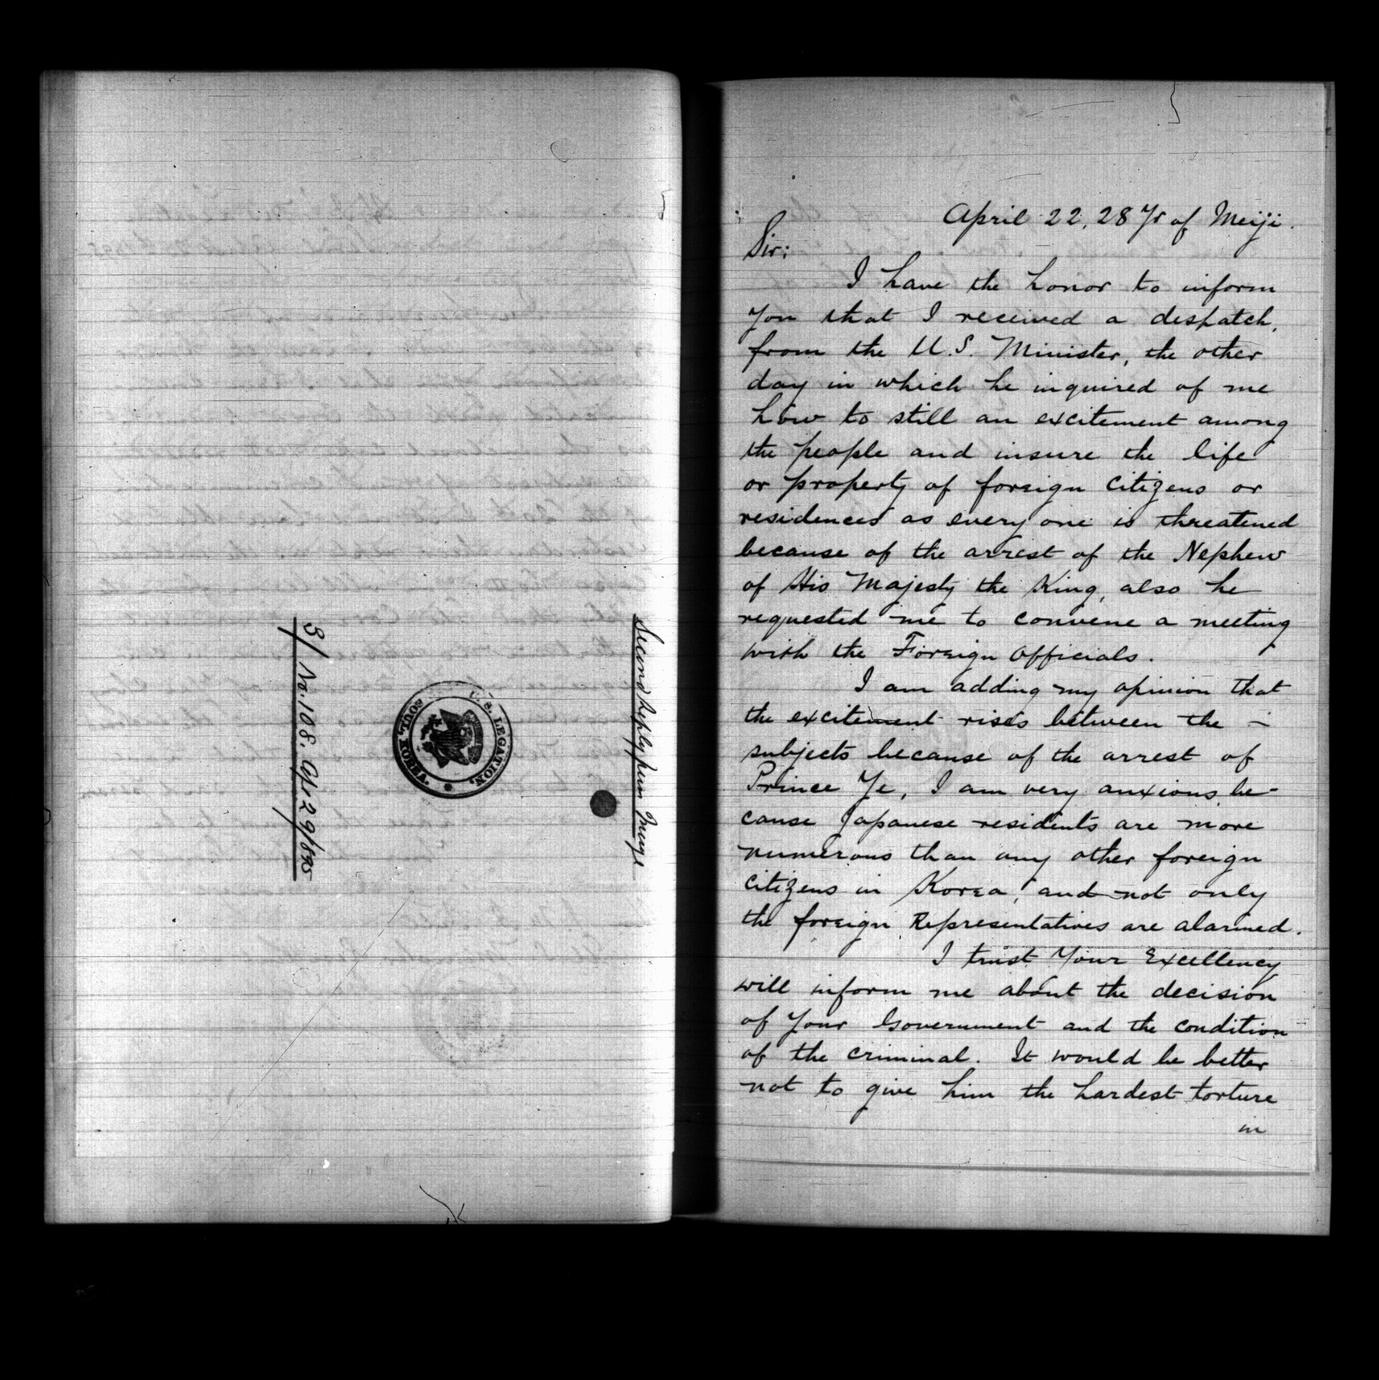 Second Reply from
3/ No. 108. Apr 29/895
U.S. LEGATION,
SOUL, KOREA.
April 22, 28 Yr of Meiji.
Sir:
I have the honor to inform
you that I received a despatch,
from the U.S. Minister, the other
day in which he inquired of me
how to still an excitement among
the people and insure the life
or property of foreign citizens or
residences as every one is threatened
because of the arrest of the Nephew
of His Majesty the King, also he
requested me to convene a meeting
with the Foreign Officials.
I am adding my opinion that
the excitement rises between the -
subjects because of the arrest of
Prince Ye, I am very anxious be-
cause Japanese residents are more
numerous than any other foreign
citizens in Korea, and not only
the foreign Representatives are alarmed.
I trust Your Excellency
will inform me about the decision
of your Government and the condition
of the criminal. It would be better
not to give him the hardest torture
in